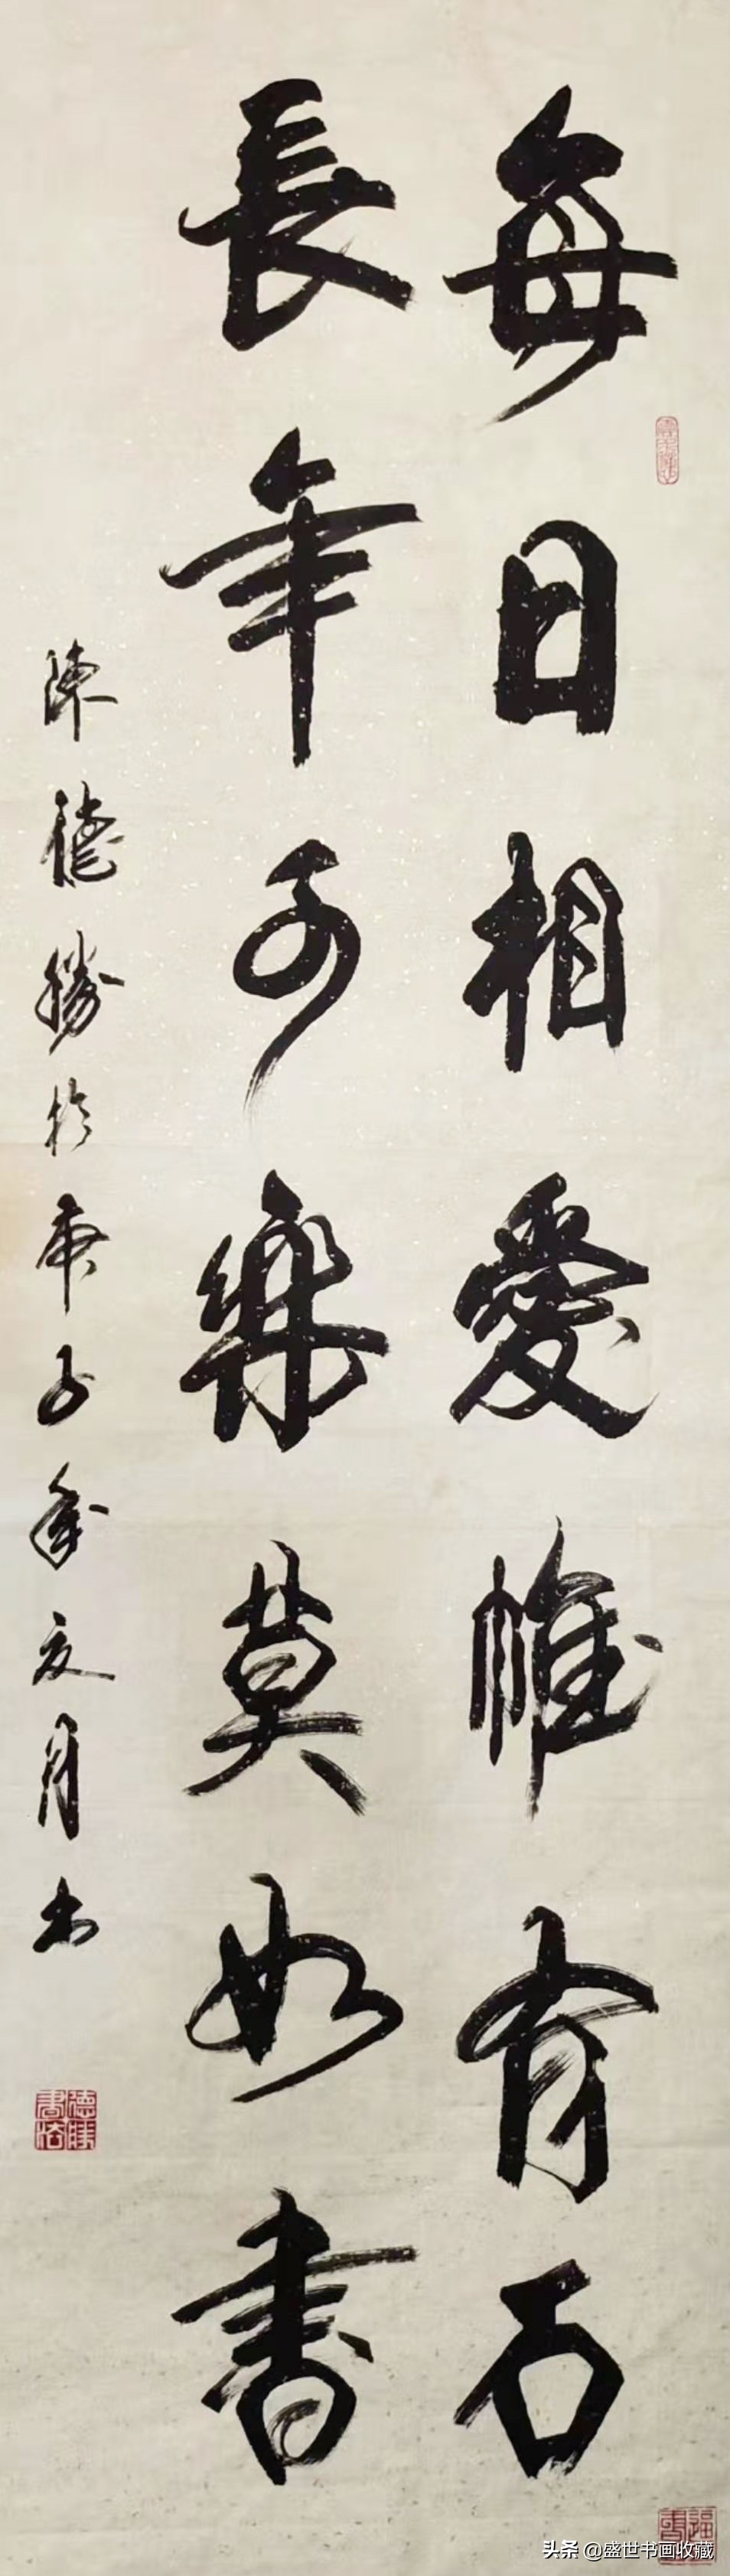 每日相愛帷有石
長年可樂莫如書
陳德勝於庚子年夏月書
德勝書法
头条 @盛世书画收藏